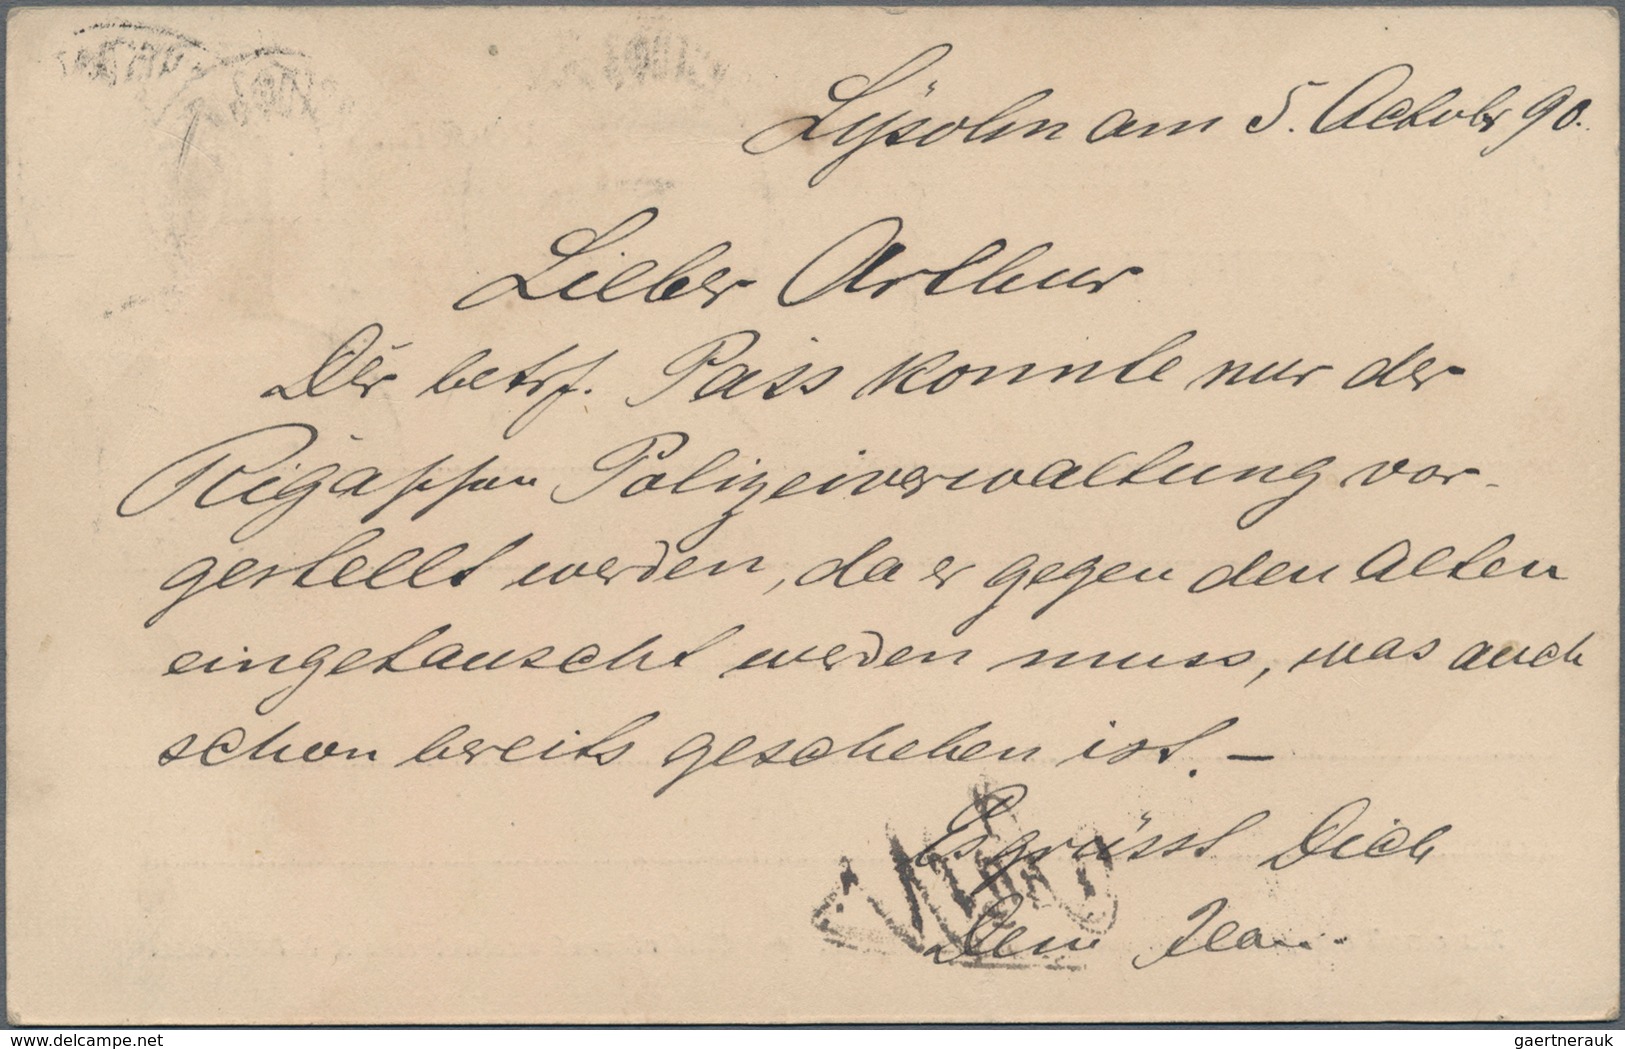 am 5. October 90.
Lieber Arthur
Der betrf. Pass konnte nur der
Polizeiverwaltung vor-
gestellt werden, da er gegen den Alten
eingetauscht werden muss, was auch
schon bereits geschehen ist. –
Es grüsst Dich
Dein Jean.
delcampe.net
gaertnerauk